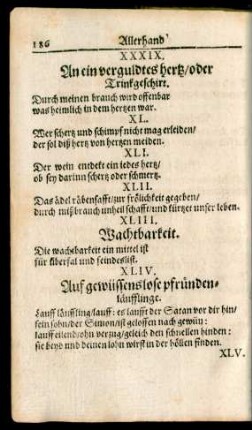 186 Allerhand
XXXIX.
An ein verguldtes hertz/oder
Trinkgeschirr.
Durch meinen brauch wird offenbar
was heimlich in dem hertzen war.
XL.
Wer schertz und schimpf nicht mag erleiden/
der sol diß hertz von hertzen meiden.
XLI.
Der wein entdekt ein iedes hertz/
ob sey darinn schertz oder schmertz.
XLII.
Das ädel räbensafft/zur frölichkeit gegeben/
durch mißbrauch unheil schafft/und kürtzet unser leben.
XLIII.
Wachtbarkeit.
Die wachtbarkeit ein mittel ist
für überfal und feindeslist.
XLIV.
Auf gewüssenslose pfründen-
läufflinge.
Läuff läuffling/lauff: es laufft der Satan vor dir hin/
sein sohn/der Simon/ist geloffen nach gewün:
lauff eilend/ohn verzug/gleich den schnellen hinden:
sie beyd und deinen lohn wirst in der höllen finden.
XLV.